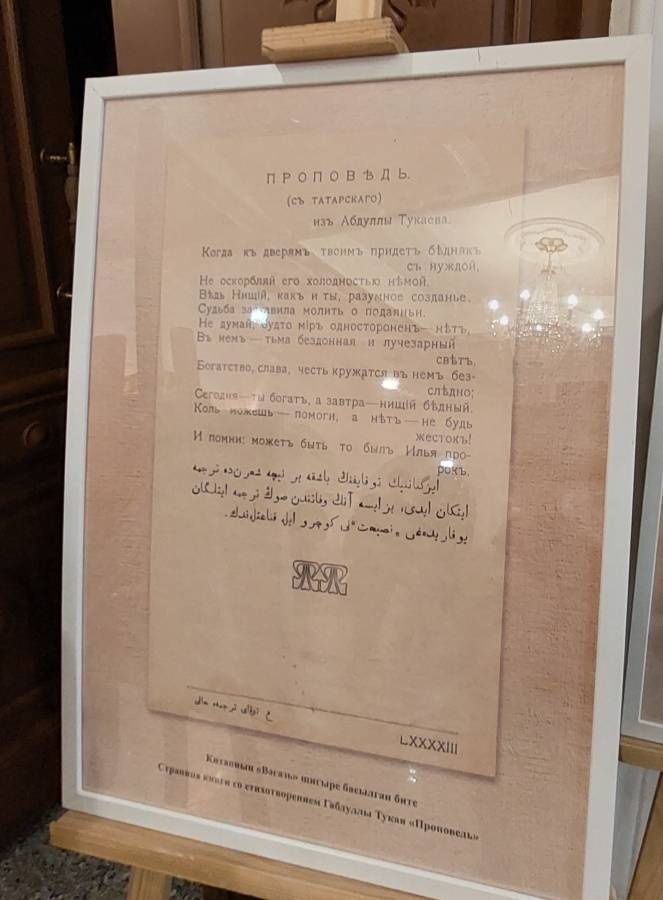 ПРОПОВѢДЬ.
(съ татарскаго)
изъ Абдуллы Тукаева.
Когда къ дверямъ твоимъ придетъ бѣднякъ
съ нуждой,
Не оскорбляй его холодностью нѣмой.
Вѣдь Нищій, какъ и ты, разумное созданье,
Судьба заставила молить о подаяньи.
Не думай, будто міръ одностороненъ — нѣтъ,
Въ немъ — тьма бездонная и лучезарный
свѣтъ,
Богатство, слава, честь кружатся въ немъ без-
слѣдно;
Сегодня — ты богатъ, а завтра — нищій бѣдный.
Коль можешь — помоги, а нѣтъ — не будь
жестокъ!
И помни: можетъ быть то былъ Илья про-
рокъ.
توقايفنڭ باشقه بر نيچه شعرن ده ترجمه
ايتكان ايدى، بز ايسه آنڭ وفاتندن صوڭ ترجمه ايتلگان
يوقاريده‌غى «نصيحت» نى كوچرو ايله قناعتلندك.
ع توقاى ترجمه‌ء حالى
LXXXXIII
Китапның «Вәгазь» шигыре басылган бите
Страница книги со стихотворением Габдуллы Тукая «Проповедь»